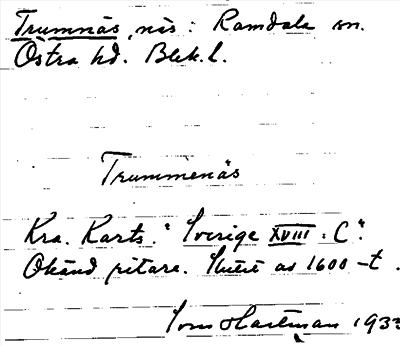 Trumnäs, näs: Ramdala sn.
Östra hd. Blek. l.
Trummenäs
Kra. Karts. "Sverige XVIII: C".
Okänd ritare. Slutet av 1600-t.
Hartman 193